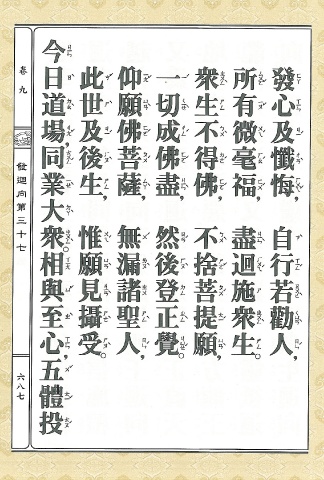 發心及懺悔，自行若勸人，
所有微毫福，盡迴施眾生。
眾生不得佛，不捨菩提願，
一切成佛盡，然後登正覺。
仰願佛菩薩，無漏諸聖人，
此世及後生，惟願見攝受。
今日道場，同業大眾。相與至心，五體投
卷九
發迴向第三十七
六八七